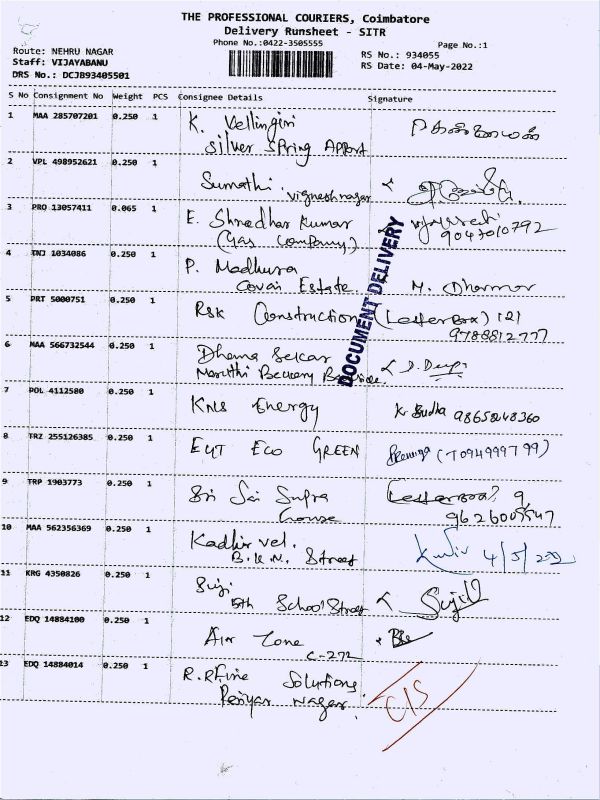 THE PROFESSIONAL COURIERS, Coimbatore
Delivery Runsheet - SITR
Phone No.:0422-3505555
Page No.:1
Route: NEHRU NAGAR
Staff: VIJAYABANU
DRS No.: DCJB93405501
RS No.: 934055
RS Date: 04-May-2022
S No Consignment No Weight PCS Consignee Details Signature
1 MAA 285707201 0.250 1 K. Vellingiri
Silver Spring Appart
2 VPL 498952621 0.250 1 Sumathi. vigneshnagar
3 PRO 13057411 0.065 1 E. Shradhar Kumar
(Gas Company) 9043010792
4 TNJ 1034086 0.250 1 P. Madhura
Covai Estate. M. Dharmar
5 PRT 5000751 0.250 1 Rsk Construction (Letterbox) 121
9788812777
DOCUMENT DELIVERY
6 MAA 566732544 0.250 1 Dhana Sekar
Maruthi Beckery
7 POL 4112580 0.250 1 KNS Energy K. Sudha 9865248360
8 TRZ 255126385 0.250 1 EUT ECO GREEN (7094999799)
9 TRP 1903773 0.250 1 Sri Sai Supra
house Letterbox
10 MAA 562356369 0.250 1 Kadhir vel.
B.K.N. Street 4/5/202
11 KRG 4350826 0.250 1 Suji
5th School Street Sujith
12 EDQ 14884100 0.250 1 Air Zone
C-272
13 EDQ 14884014 0.250 1 R.RFine Solutions
Periyar Nagar. C/S